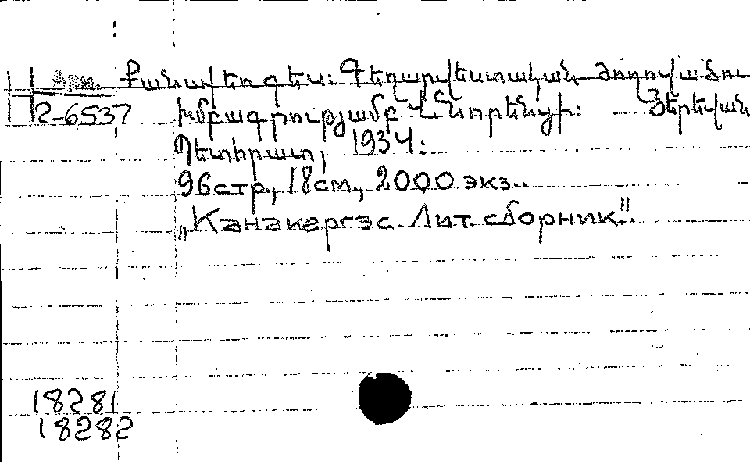 Քանաքեռգես: Գեղարվեստական ժողովածու
2-6537 Խմբագրությամբ Վ. Նորենցի: Յերեվան
Պետհրատ, 1934:
96 стр, 18 см, 2000 экз.
„Канакергэс. Лит. сборник".
18281
18282